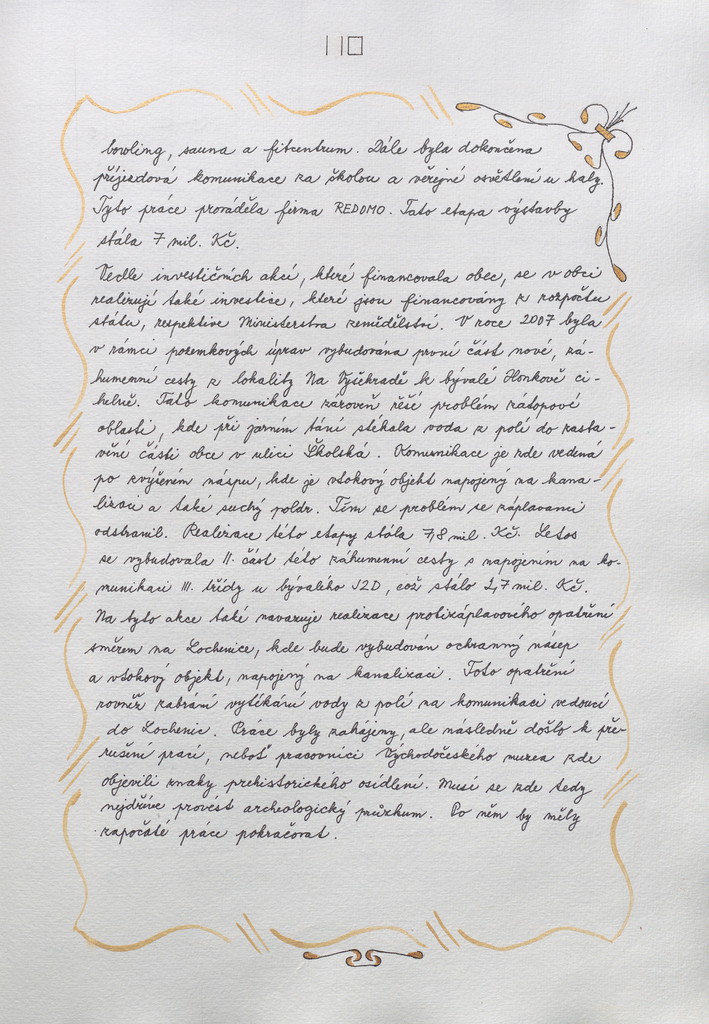 110
bowling, sauna a fitcentrum. Dále byla dokončena
příjezdová komunikace za školou a veřejné osvětlení u haly.
Tyto práce prováděla firma REDOMO. Tato etapa výstavby
stála 7 mil. Kč.
Vedle investičních akcí, které financovala obec, se v obci
realizují také investice, které jsou financovány z rozpočtu
státu, respektive Ministerstva zemědělství. V roce 2007 byla
v rámci pozemkových úprav vybudována první část nové, zá-
humenní cesty z lokality Na Vyšehradě k bývalé Honkově ci-
helně. Tato komunikace zároveň řeší problém zátopové
oblasti, kde při jarním tání stékala voda z polí do zasta-
věné části obce v ulici Školská. Komunikace je zde vedená
po zvýšeném náspu, kde je vtokový objekt napojený na kana-
lizaci a také suchý poldr. Tím se problém se záplavami
odstranil. Realizace této etapy stála 7,8 mil. Kč. Letos
se vybudovala II. část této záhumenní cesty s napojením na ko-
munikaci III. třídy u bývalého JZD, což stálo 2,7 mil. Kč.
Na tyto akce také navazuje realizace protizáplavového opatření
směrem na Lochenice, kde bude vybudován ochranný násep
a vtokový objekt, napojený na kanalizaci. Toto opatření
rovněž zabrání vytékání vody z polí na komunikaci vedoucí
do Lochenic. Práce byly zahájeny, ale následně došlo k pře-
rušení prací, neboť pracovníci Východočeského muzea zde
objevili znaky prehistorického osídlení. Musí se zde tedy
nejdříve provést archeologický průzkum. Po něm by měly
započaté práce pokračovat.